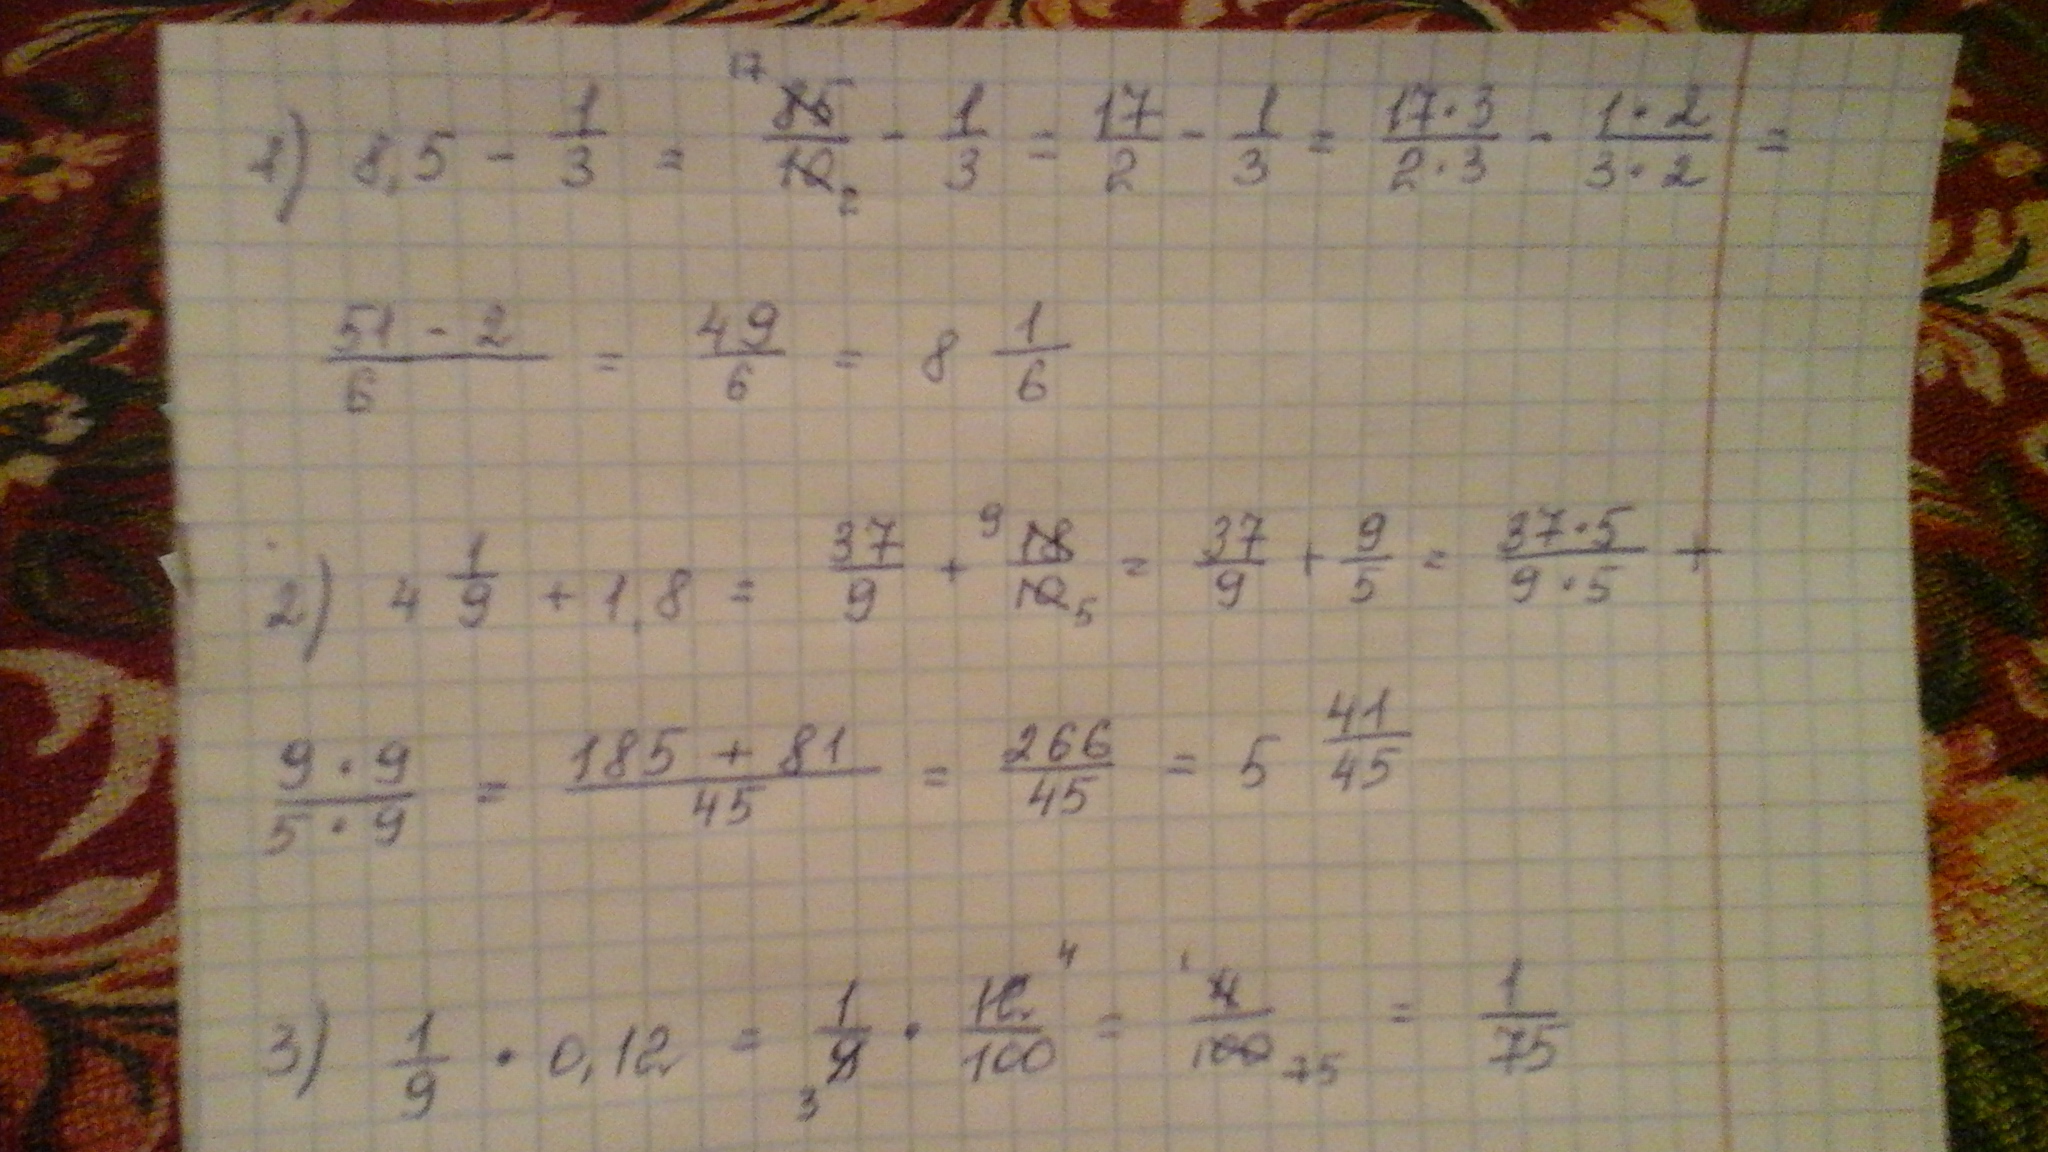 1) 8,5 - 1/3 = 17 85/10 2 - 1/3 = 17/2 - 1/3 = 17·3/2·3 - 1·2/3·2 =
51 - 2/6 = 49/6 = 8 1/6
2) 4 1/9 + 1,8 = 37/9 + 9 18/10 5 = 37/9 + 9/5 = 37·5/9·5 +
9·9/5·9 = 185 + 81/45 = 266/45 = 5 41/45
3) 1/9 · 0,12 = 1/9 3 · 12/100 4 = 1 4/100 75 = 1/75